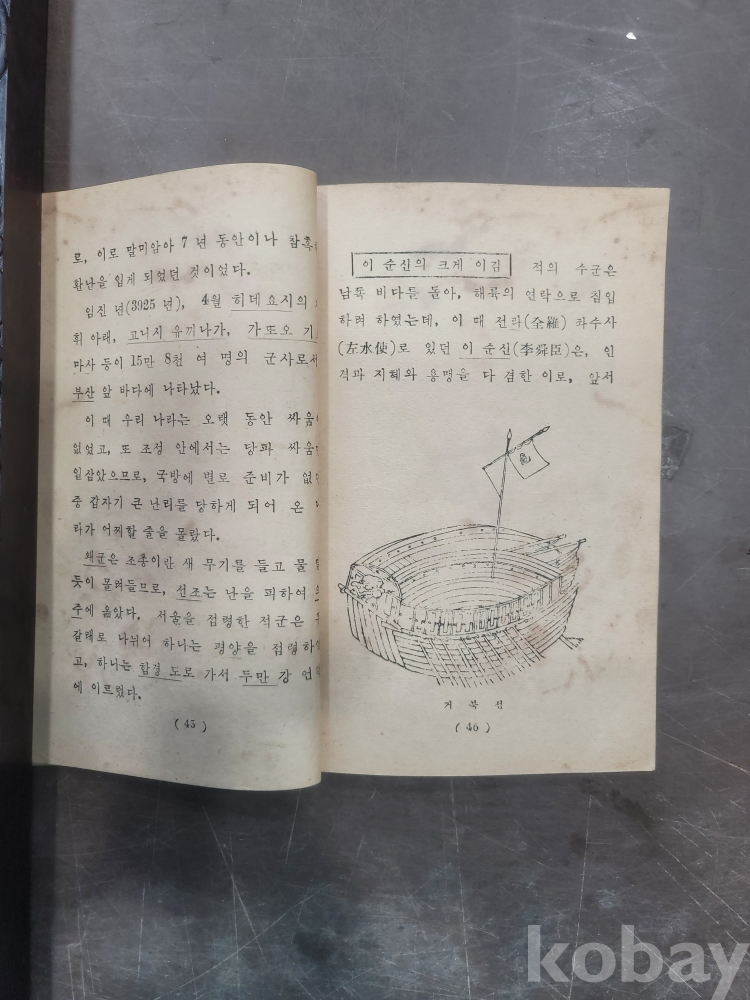 로, 이로 말미암아 7 년 동안이나 참혹
환난을 입게 되었던 것이었다.
임진 년(3925 년), 4월 히데요시의
휘 아래, 고니시 유끼나가, 가또오 기
마사 등이 15만 8천 여 명의 군사로서
부산 앞 바다에 나타났다.
이 때 우리 나라는 오랫 동안 싸움
없었고, 또 조정 안에서는 당파 싸움
일삼았으므로, 국방에 별로 준비가 없
중 갑자기 큰 난리를 당하게 되어 온
라가 어찌할 줄을 몰랐다.
왜군은 조총이란 새 무기를 들고 물
듯이 몰려들므로, 선조는 난을 피하여
주에 옮았다. 서울을 점령한 적군은
갈래로 나뉘어 하나는 평양을 점령하
고, 하나는 함경 도로 가서 두만 강 연
에 이르렀다.
( 45 )
이 순신의 크게 이김 적의 수군은
남독 비다를 돌아, 해륙의 연락으로 침입
하려 하였는데, 이 때 전라(全羅) 좌수사
(左水使)로 있던 이 순신(李舜臣)은, 인
격과 지혜와 용맹을 다 겸한 이로, 앞서
거 북 선
( 46 )
kobay